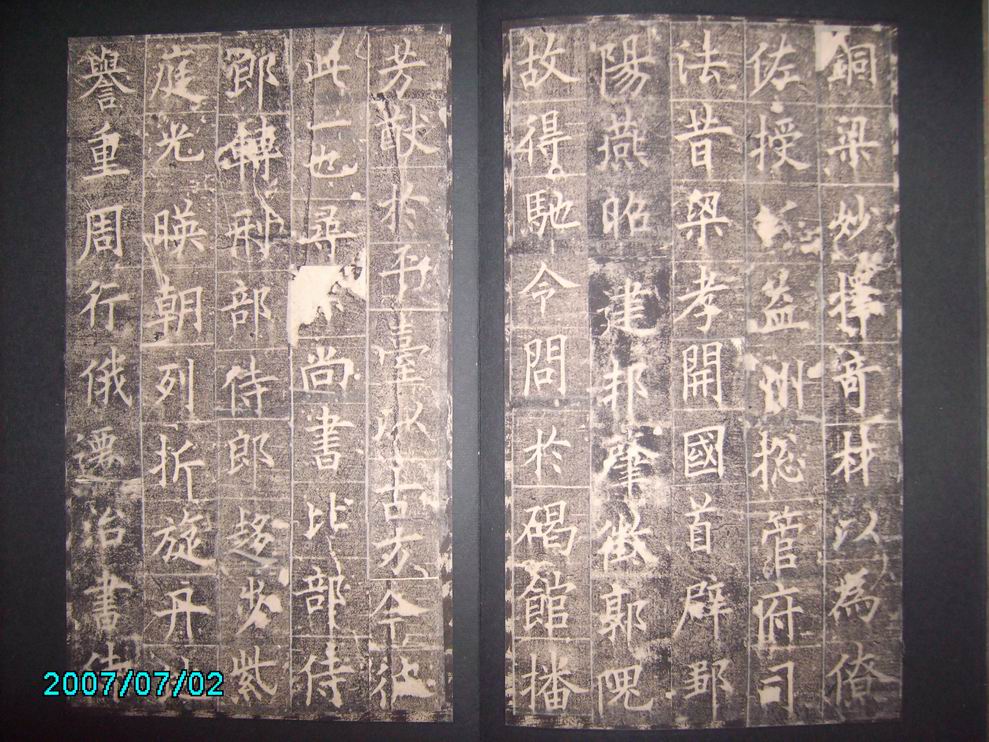 銅梁妙擇奇材以為僚
佐授益州揔管府司
法昔梁孝開國首辟鄒
陽燕昭建邦肇徵郭隗
故得馳令問於碣館播
芳猷於平臺以古方今彼
此一也尋尚書比部侍
郎轉刑部侍郎趍步紫
庭光暎朝列折旋丹地
譽重周行俄遷治書侍
2007/07/02